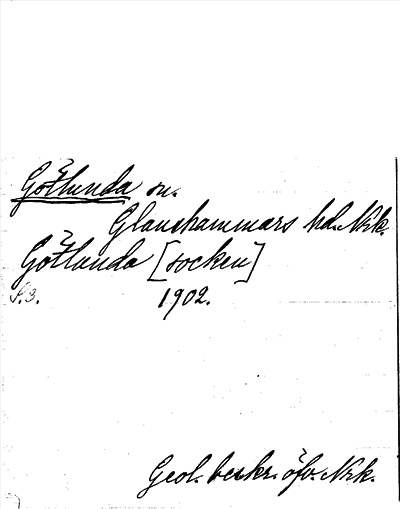 Götlunda sn.
Glanshammars hd. Nrk.
Götlunda [socken]
S. 3. 1902.
Geol. beskr. öfv. Nrk.